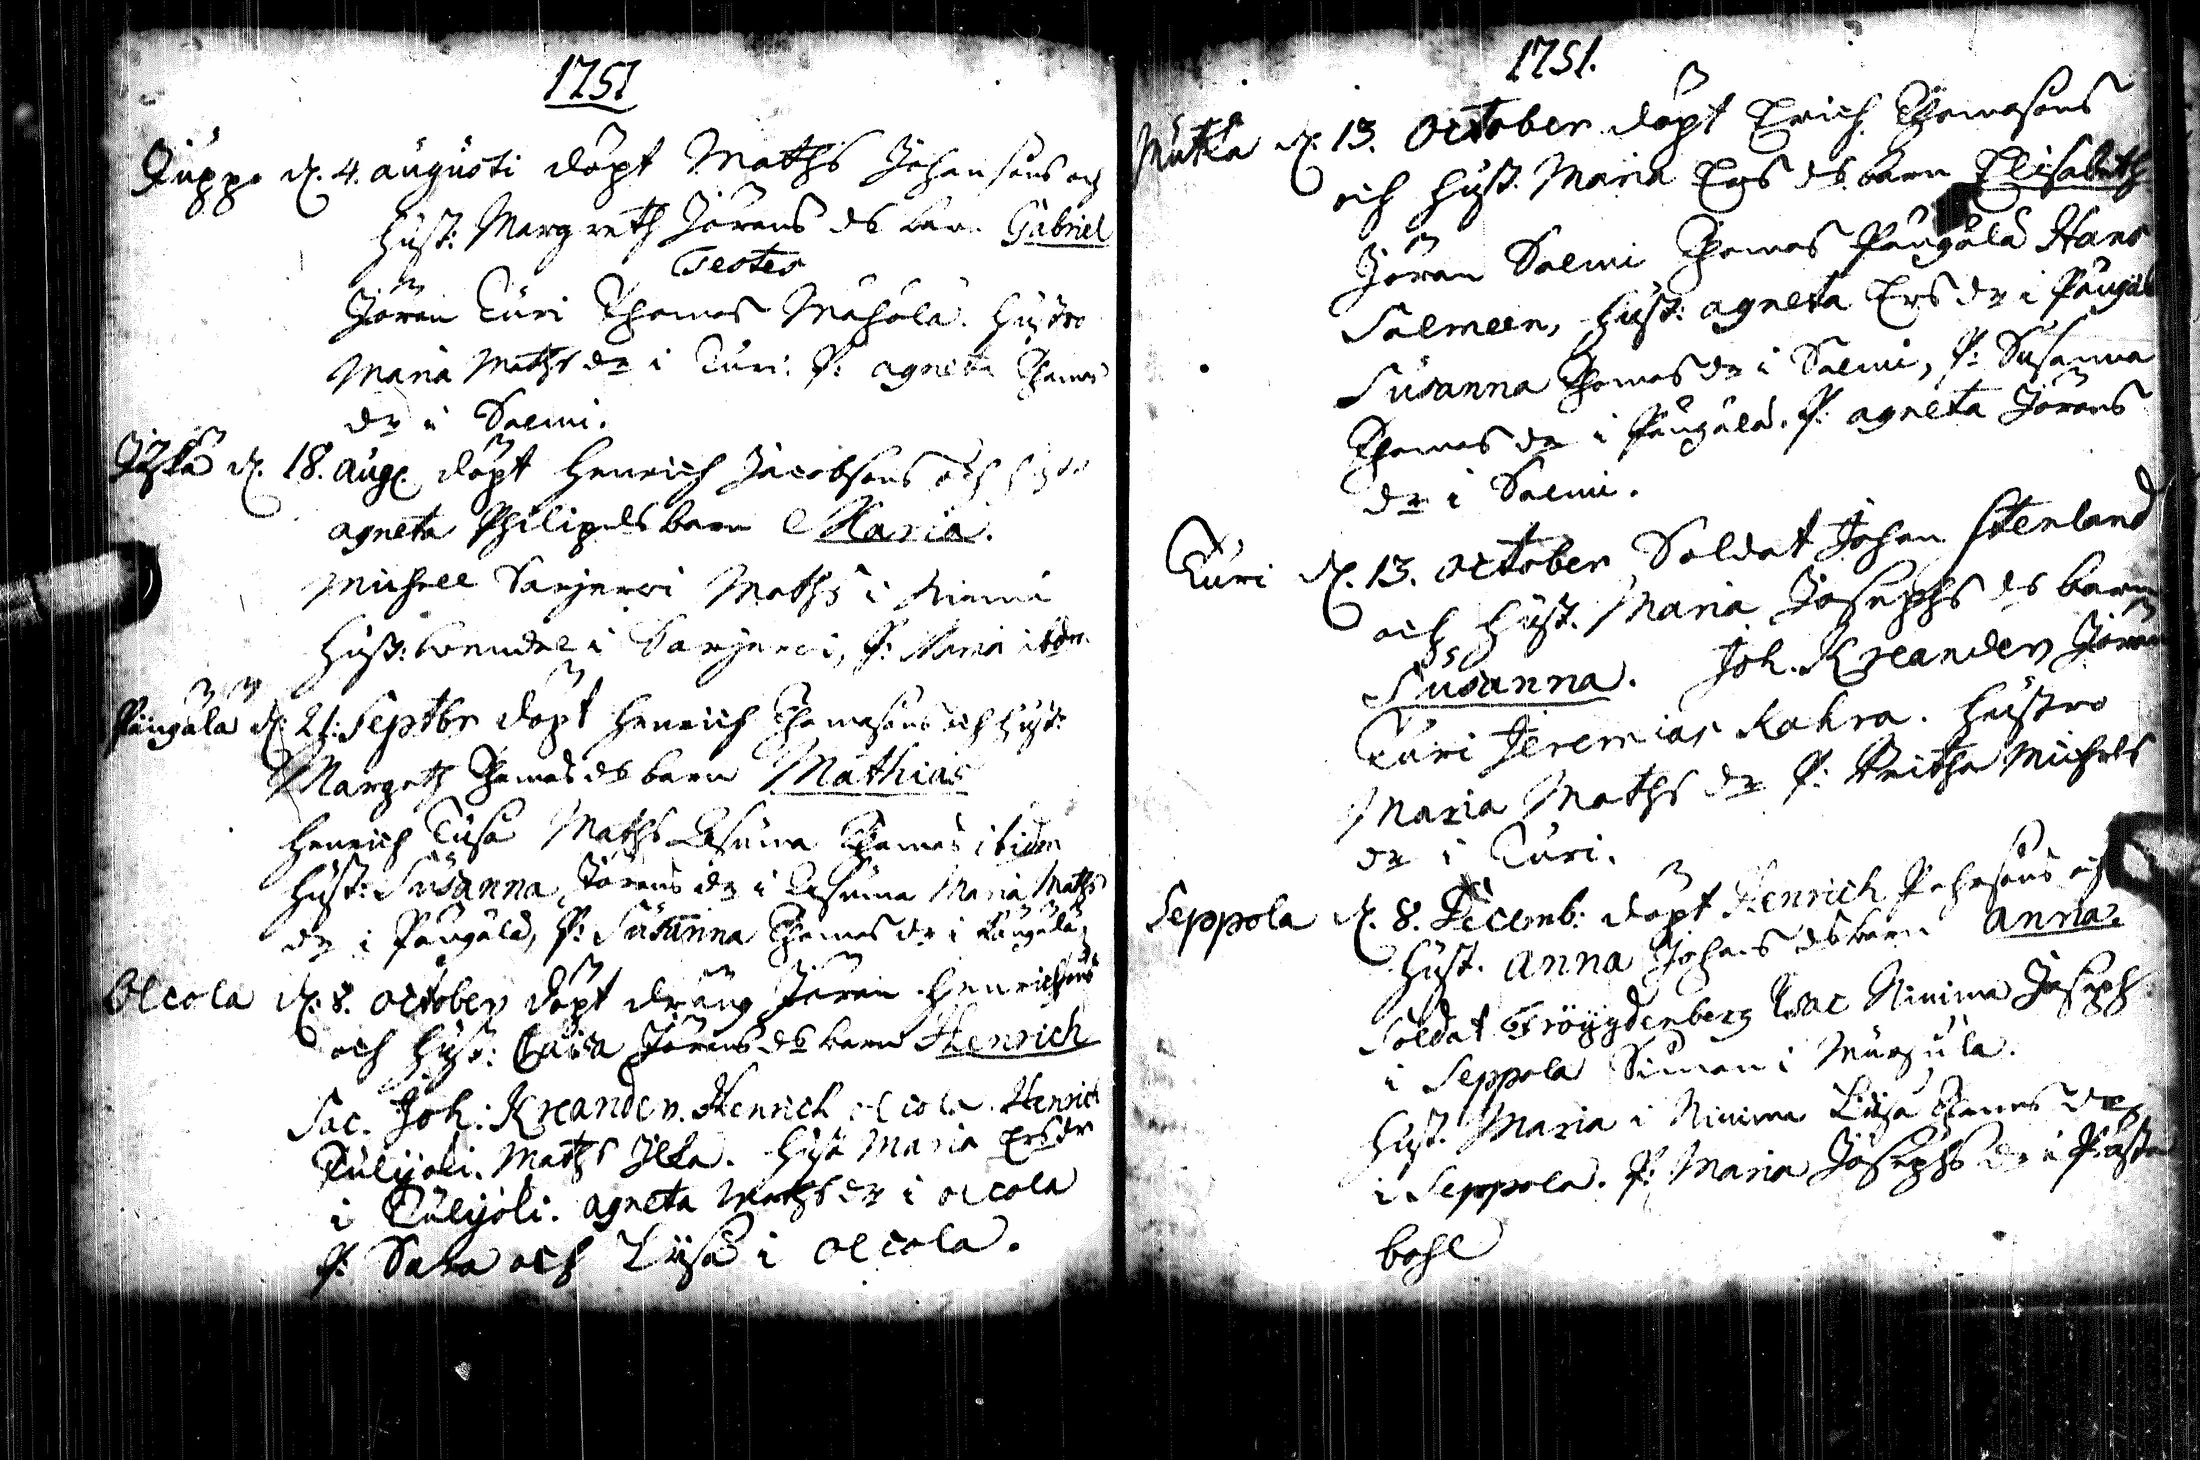 1751
Juppo d. 4. augusti döpt Maths Johansons och
hust: Margreth Jörans ds barn Gabriel
Testes
Jöran Turi Thomas Mahola. hustro
Maria Maths dr i Turi. P: agneta Thomas
dr i Salmi.
d. 18. aug. döpt Henrich Jacobsons och
agneta Philips ds barn Maria.
Michell Sarjerwi Maths i Niemi
hust: i Sarjerwi, P: Maria ibdm.
Pangala d. 21. Septbr döpt Henrich Thomasons och hust:
Margeth Thomas ds barn Mathias
Henrich Tusa Maths Thomas ibidm
hust: Susanna Jörans dr i Maria Maths
dr i Pangala, P: Susanna Thomas dr i Pangala,
Olcola d. 8. october döpt dräng Jöran Henrichsons
och hust: Caisa Jörans ds barn Henrich
Sac. Joh: Kreander. Henrich olcola. Henrich
Tulijoki. Maths Jlla. hust Maria Ersdr
i Tulijoki. agneta Maths dr i olcola
P: Sara och Lijsa i olcola.
1751.
Mutka d. 13. October döpt Erich Thomasons
och hust. Maria Ers ds barn Elisabeth
Jöran Salmi Thomas Pangala Hans
Salmeen, hust: agneta Ers dr i Pangal
Susanna Thomas dr i Salmi, P: Susanna
Thomas dr i Pangala. P: agneta Jörans
dr i Salmi.
Turi d. 13. october Soldat Johan Stenland
och hust. Maria Josephs ds barn
Susanna. Joh. Kreander Jöran
Turi Jeremias Kahra. hustro
Maria Maths dr P: Britha Michels
dr i Turi.
Seppola d. 8. Decemb: döpt Henrich Pehrsons och
hust. Anna Johans ds barn anna.
Soldat Fröygdenberg Isac Ninima Joseph
i Seppola Simon i Murzula.
hust. Maria i Ninima Lijsa Thomas dr
i Seppola. P: Maria Josephs dr i Prästa
bohl